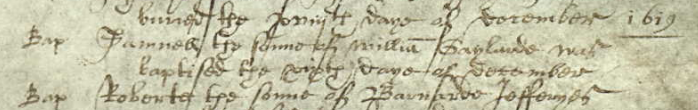 buried the xviijth daye of december 1619
Bap Samuell the sonne of Williā Gaylarde was
baptised the xixth daye of december
Bap Roberte the sonne of Barnarde Jefferyes